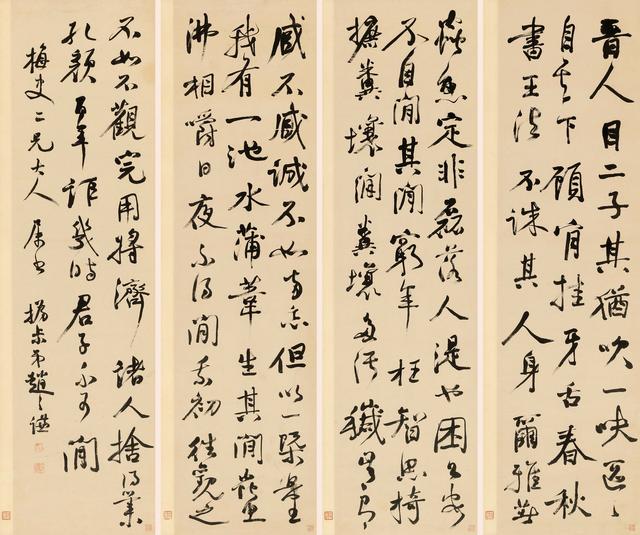 晉人目二子其猶吹一吷區〻
自其下顧肯挂牙舌春秋
書王法不誅其人身爾雅注
蟲魚定非磊落人湜也困公安
不自閒其閒窮年枉智思掎
摭糞壤閒糞壤多汙穢豈有
臧不臧誠不如兩忘但以一槩量
我有一池水蒲葦生其間蟲魚
沸相嚼日夜不得閒我初往觀之
不如不觀完用將濟諸人捨得業
孔顏百年詎幾時君子不可閒
梅史二兄大人屬書 撝叔弟趙之謙